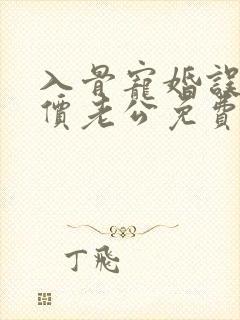 入骨寵婚誤
價老公免費
丁飛